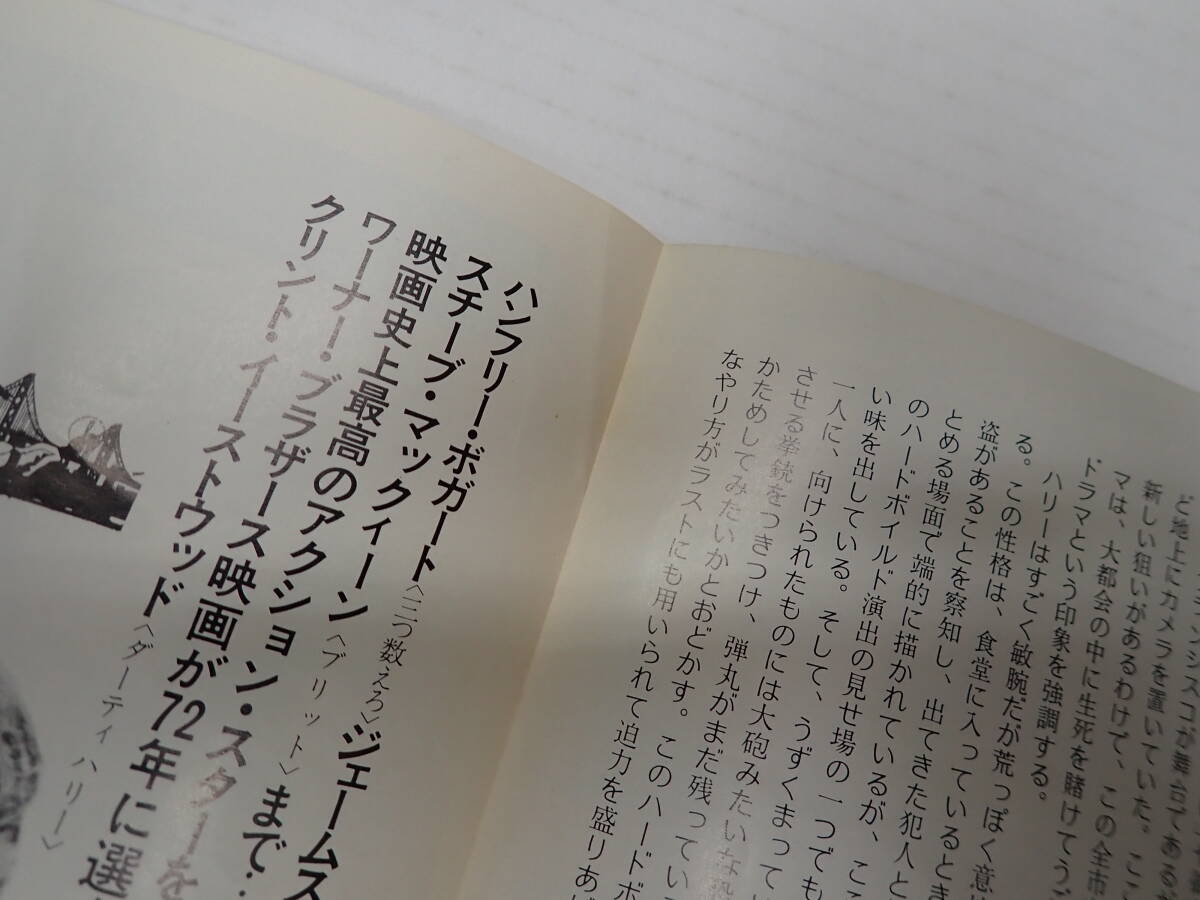 ンシスコが舞台であるが
ど地上にカメラを置いていた。ここ
新しい狙いがあるわけで、この全市
マは、大都会の中に生死を賭けてうご
ドラマという印象を強調する。
ハリーはすごく敏腕だが荒っぽく意
る。この性格は、食堂に入っているとき
盗があることを察知し、出てきた犯人と
とめる場面で端的に描かれているが、ここ
のハードボイルド演出の見せ場の一つでも
い味を出している。そして、うずくまって
一人に、向けられたものには大砲みたいな
させる拳銃をつきつけ、弾丸がまだ残ってい
かためしてみたいかとおどかす。このハードボ
なやり方がラストにも用いられて迫力を盛りあげ
ハンフリー・ボガート〈三つ数えろ〉ジェームス
スチーブ・マックィーン〈ブリット〉まで‥
映画史上最高のアクション・スターを
ワーナー・ブラザース映画が72年に選
クリント・イーストウッド〈ダーティハリー〉